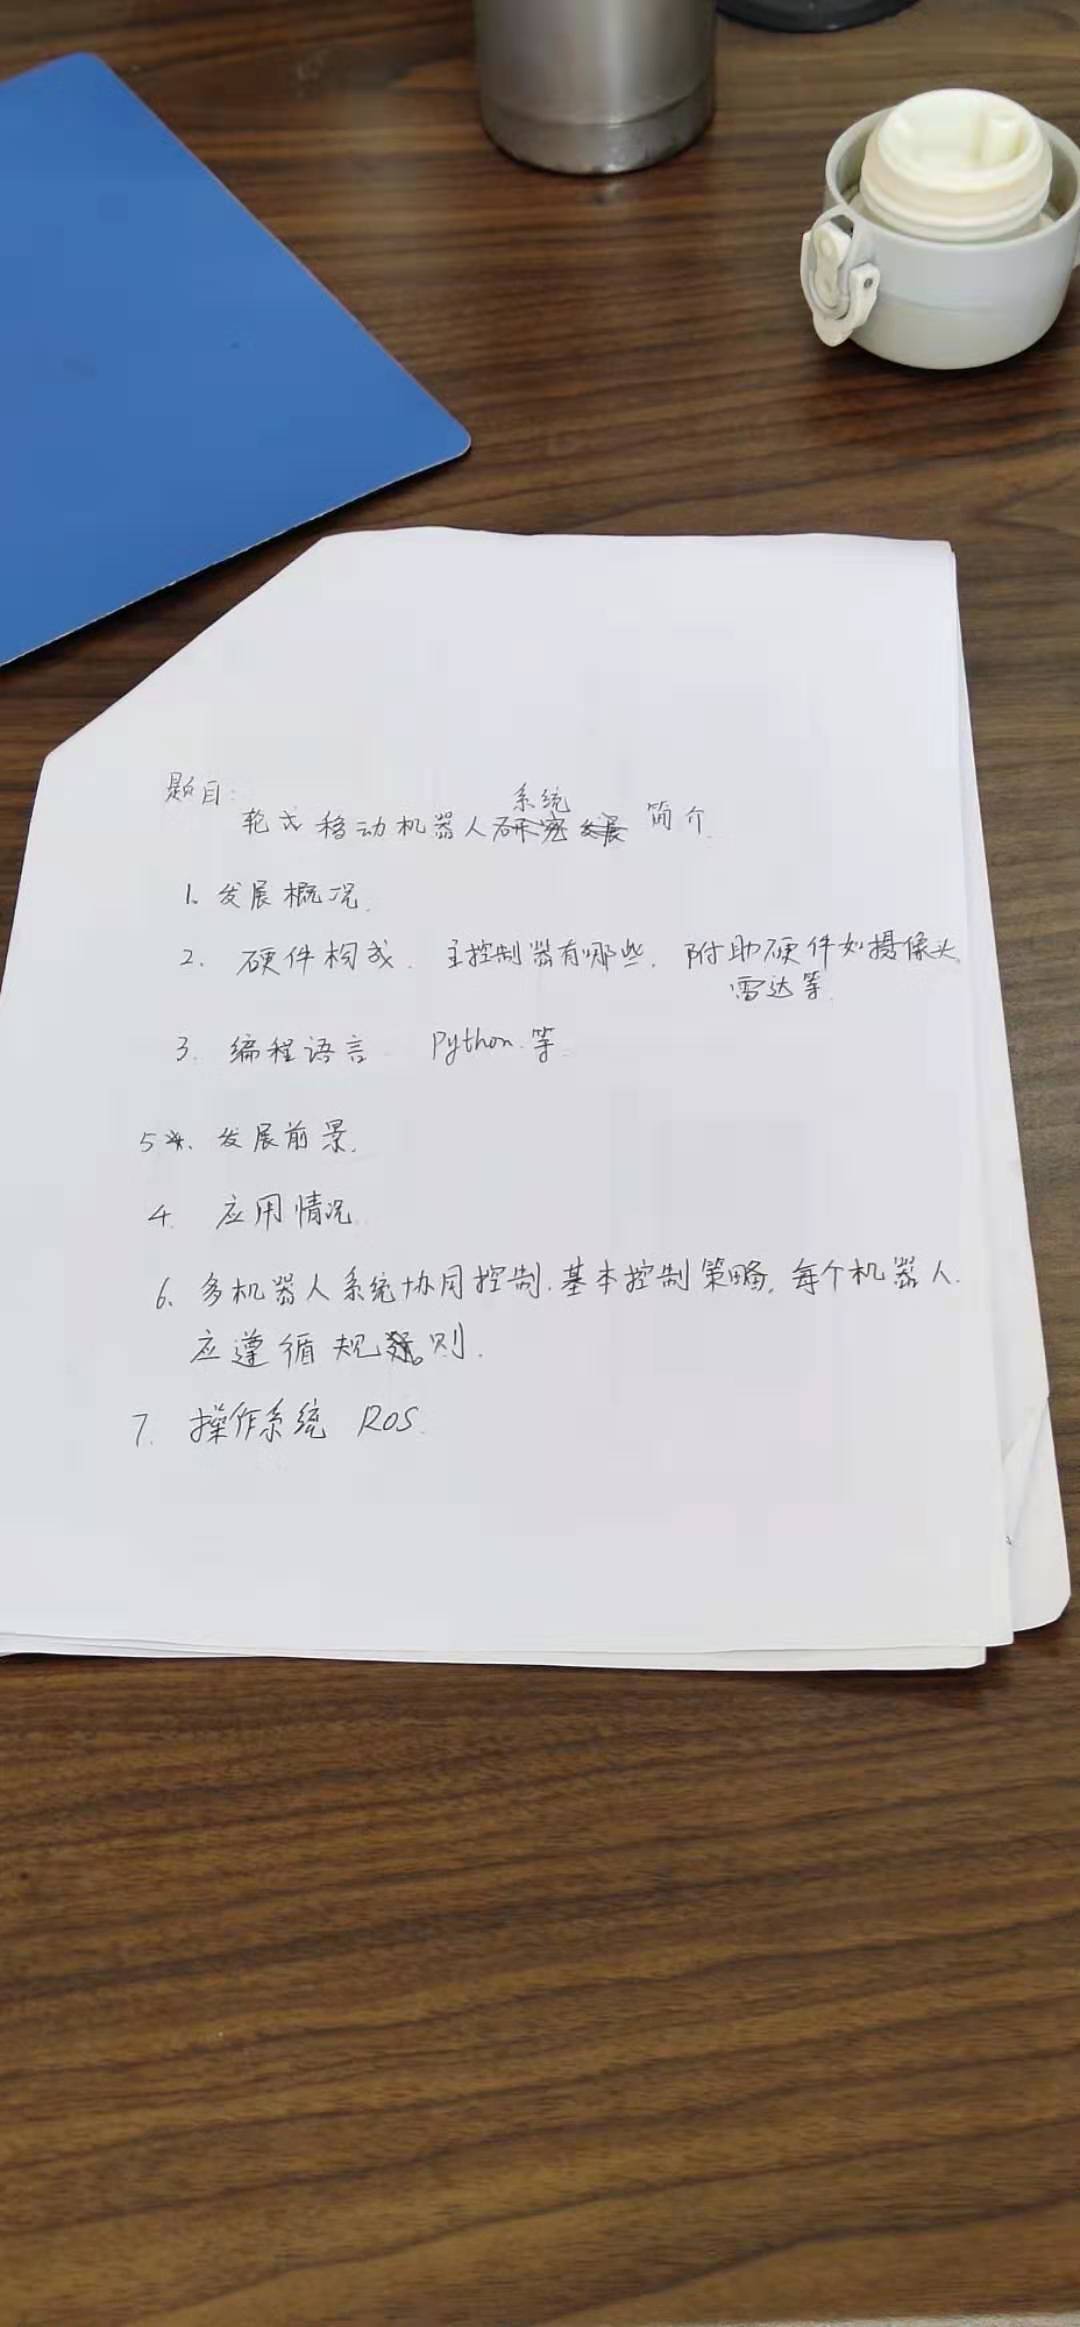 题目:
系统
轮式移动机器人研究发展 简介.
1. 发展概况.
2. 硬件构成. 主控制器有哪些. 附助硬件如摄像头
雷达等.
3. 编程语言 Python.等
5. 发展前景.
4. 应用情况
6. 多机器人系统协同控制.基本控制策略,每个机器人.
应遵循规则.
7. 操作系统 ROS.